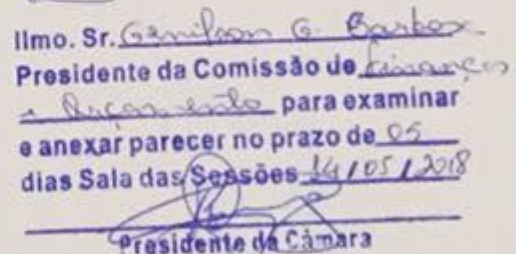 Ilmo. Sr. Genilson G. Barbosa
Presidente da Comissão de Finanças
e Orçamento para examinar
e anexar parecer no prazo de 05
dias Sala das Sessões 14 / 05 / 2018
Presidente da Câmara